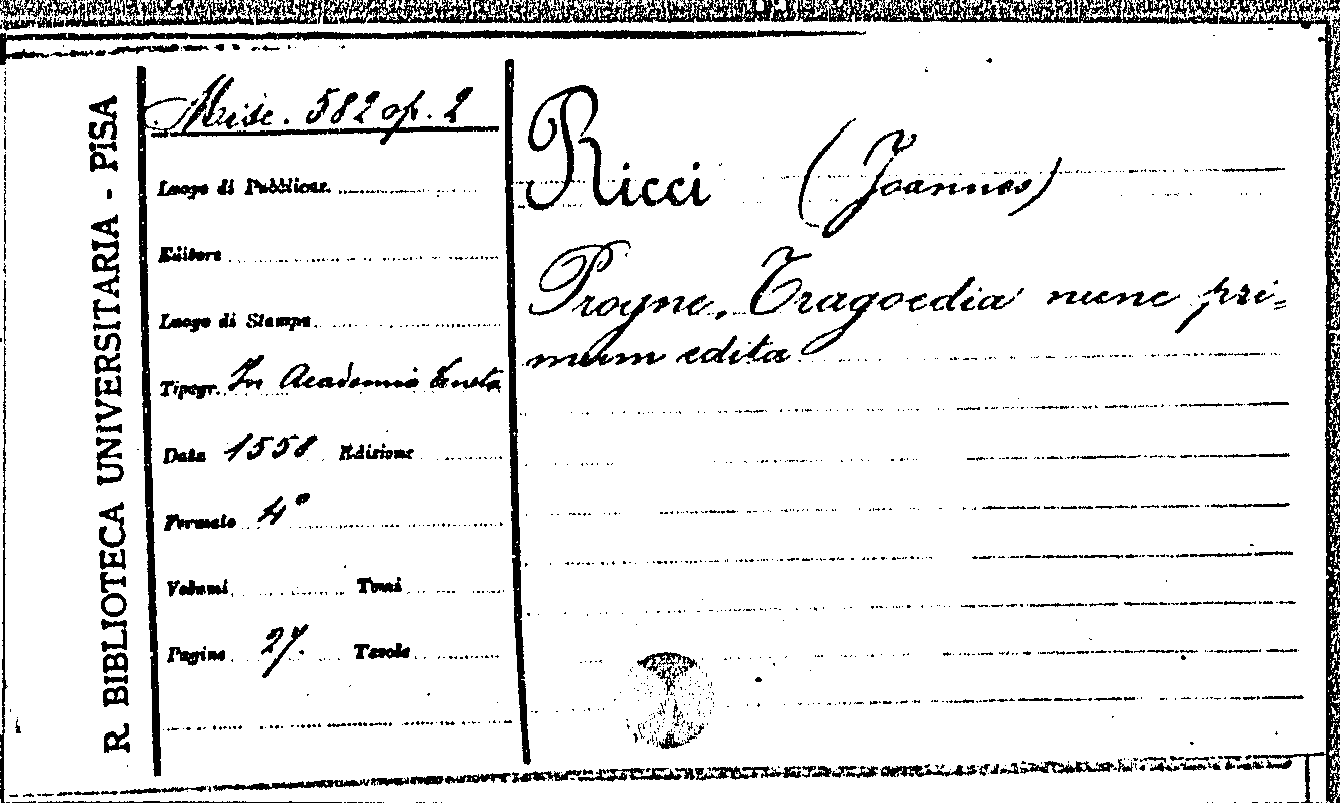 R. BIBLIOTECA UNIVERSITARIA - PISA
Misc. 582 op. 2
Luogo di Pubblicaz.
Editore
Luogo di Stampa
Tipogr. In Academia Veneta
Data 1558 Edizione
Formato 4°
Volumi Tomi
Pagine 27. Tavole
Ricci (Joannes)
Progne, Tragoedia nunc pri=
mum edita